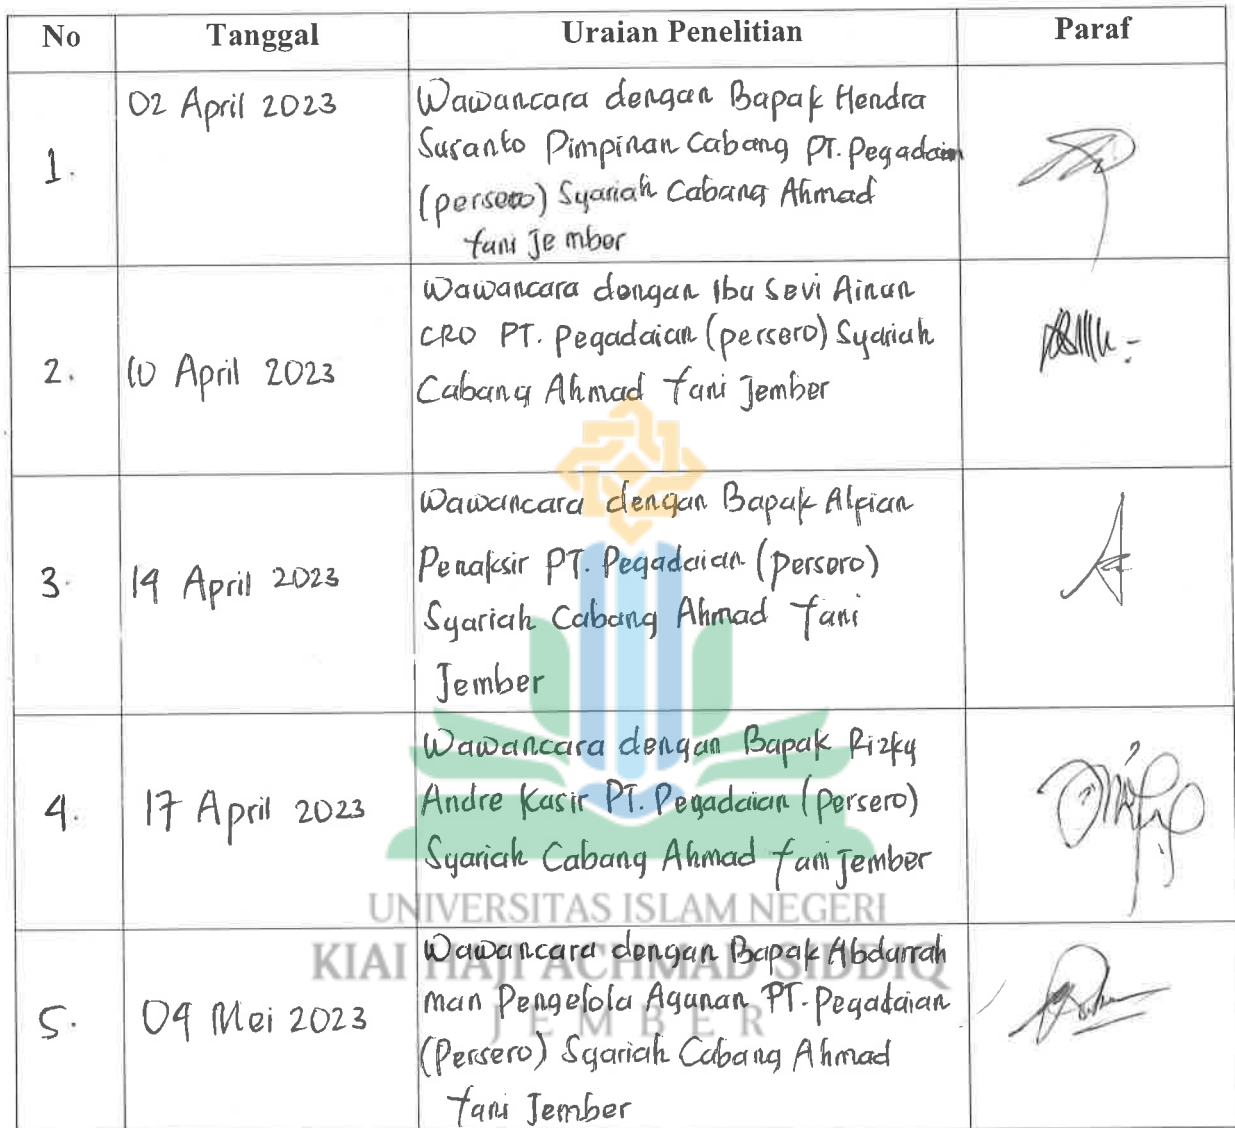 No Tanggal Uraian Penelitian Paraf
1. 02 April 2023 Wawancara dengan Bapak Hendra
Suranto Pimpinan Cabang PT. Pegadaian
(persero) Syariah Cabang Ahmad
Yani Jember
2. 10 April 2023 Wawancara dengan Ibu Sevi Ainun
CRO PT. Pegadaian (persero) Syariah
Cabang Ahmad Yani Jember
3. 14 April 2023 Wawancara dengan Bapak Alfian
Penaksir PT. Pegadaian (persero)
Syariah Cabang Ahmad Yani
Jember
4. 17 April 2023 Wawancara dengan Bapak Rizky
Andre Kasir PT. Pegadaian (persero)
Syariah Cabang Ahmad Yani Jember
UNIVERSITAS ISLAM NEGERI
KIAI HAJI ACHMAD SIDDIQ
JEMBER
5. 09 Mei 2023 Wawancara dengan Bapak Abdurrah
man Pengelola Agunan PT. Pegadaian
(Persero) Syariah Cabang Ahmad
Yani Jember